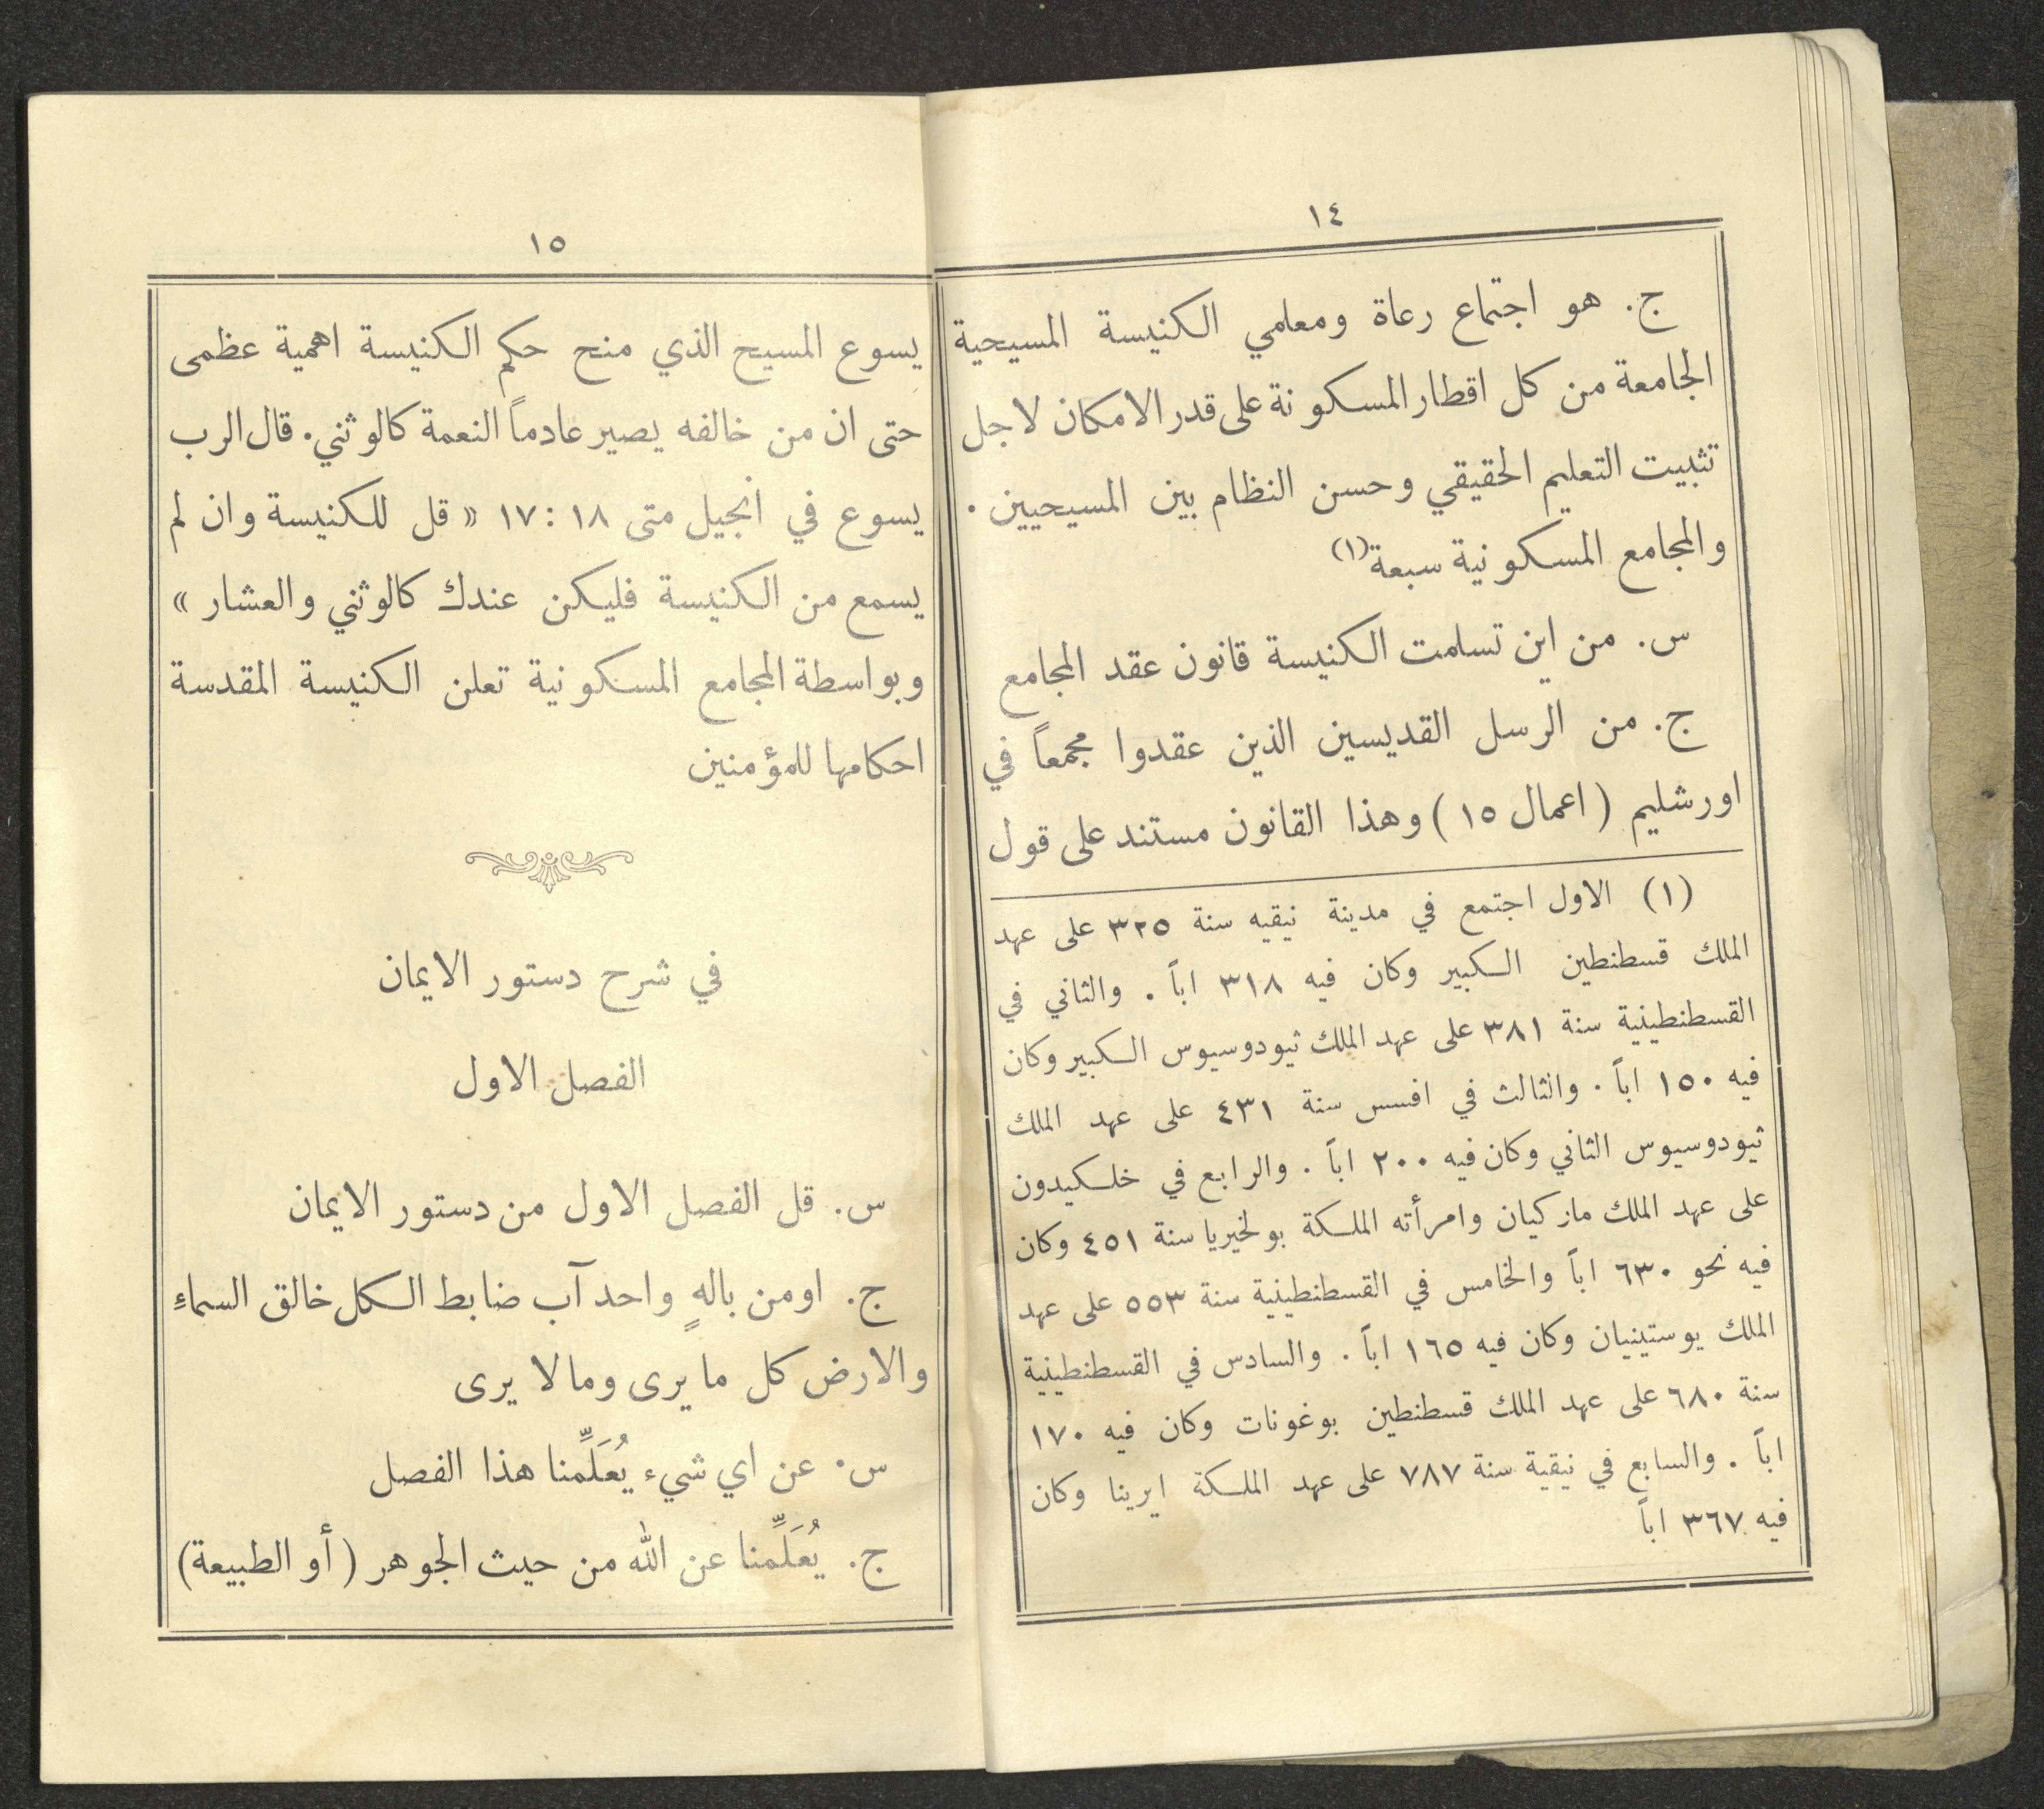 ١٤
ج. هو اجتماع رعاة ومعلمي الكنيسة المسيحية
الجامعة من كل اقطار المسكونة على قدر الامكان لاجل
تثبيت التعليم الحقيقي وحسن النظام بين المسيحيين .
والمجامع المسكونية سبعة (١)
س. من اين تسلمت الكنيسة قانون عقد المجامع
ج. من الرسل القديسين الذين عقدوا مجمعاً في
اورشليم ( اعمال ١٥ ) وهذا القانون مستند على قول
(١) الاول اجتمع في مدينة نيقيه سنة ٣٢٥ على عهد
الملك قسطنطين الكبير وكان فيه ٣١٨ اباً . والثاني في
القسطنطينية سنة ٣٨١ على عهد الملك ثيودوسيوس الكبير وكان
فيه ١٥٠ اباً . والثالث في افسس سنة ٤٣١ على عهد الملك
ثيودوسيوس الثاني وكان فيه ٢٠٠ اباً . والرابع في خلكيدون
على عهد الملك مازكيان وامرأته الملكة بولخيريا سنة ٤٥١ وكان
فيه نحو ٦٣٠ اباً والخامس في القسطنطينية سنة ٥٥٣ على عهد
الملك يوستينيان وكان فيه ١٦٥ اباً . والسادس في القسطنطينية
سنة ٦٨٠ على عهد الملك قسطنطين بوغونات وكان فيه ١٧٠
اباً . والسابع في نيقية سنة ٧٨٧ على عهد الملكة ايرينا وكان
فيه ٣٦٧ اباً
١٥
يسوع المسيح الذي منح حكم الكنيسة اهمية عظمى
حتى ان من خالفه يصير عادماً النعمة كالوثني. قال الرب
يسوع في انجيل متى ١٨ : ١٧ « قل للكنيسة وان لم
يسمع من الكنيسة فليكن عندك كالوثني والعشار »
وبواسطة المجامع المسكونية تعلن الكنيسة المقدسة
احكامها للمؤمنين
في شرح دستور الايمان
الفصل الاول
س. قل الفصل الاول من دستور الايمان
ج. اومن بالهٍ واحد آب ضابط الكل خالق السماءِ
والارض كل ما يرى وما لا يرى
س. عن اي شيء يُعَلِّمنا هذا الفصل
ج. يُعَلِّمنا عن الله من حيث الجوهر ( أو الطبيعة )